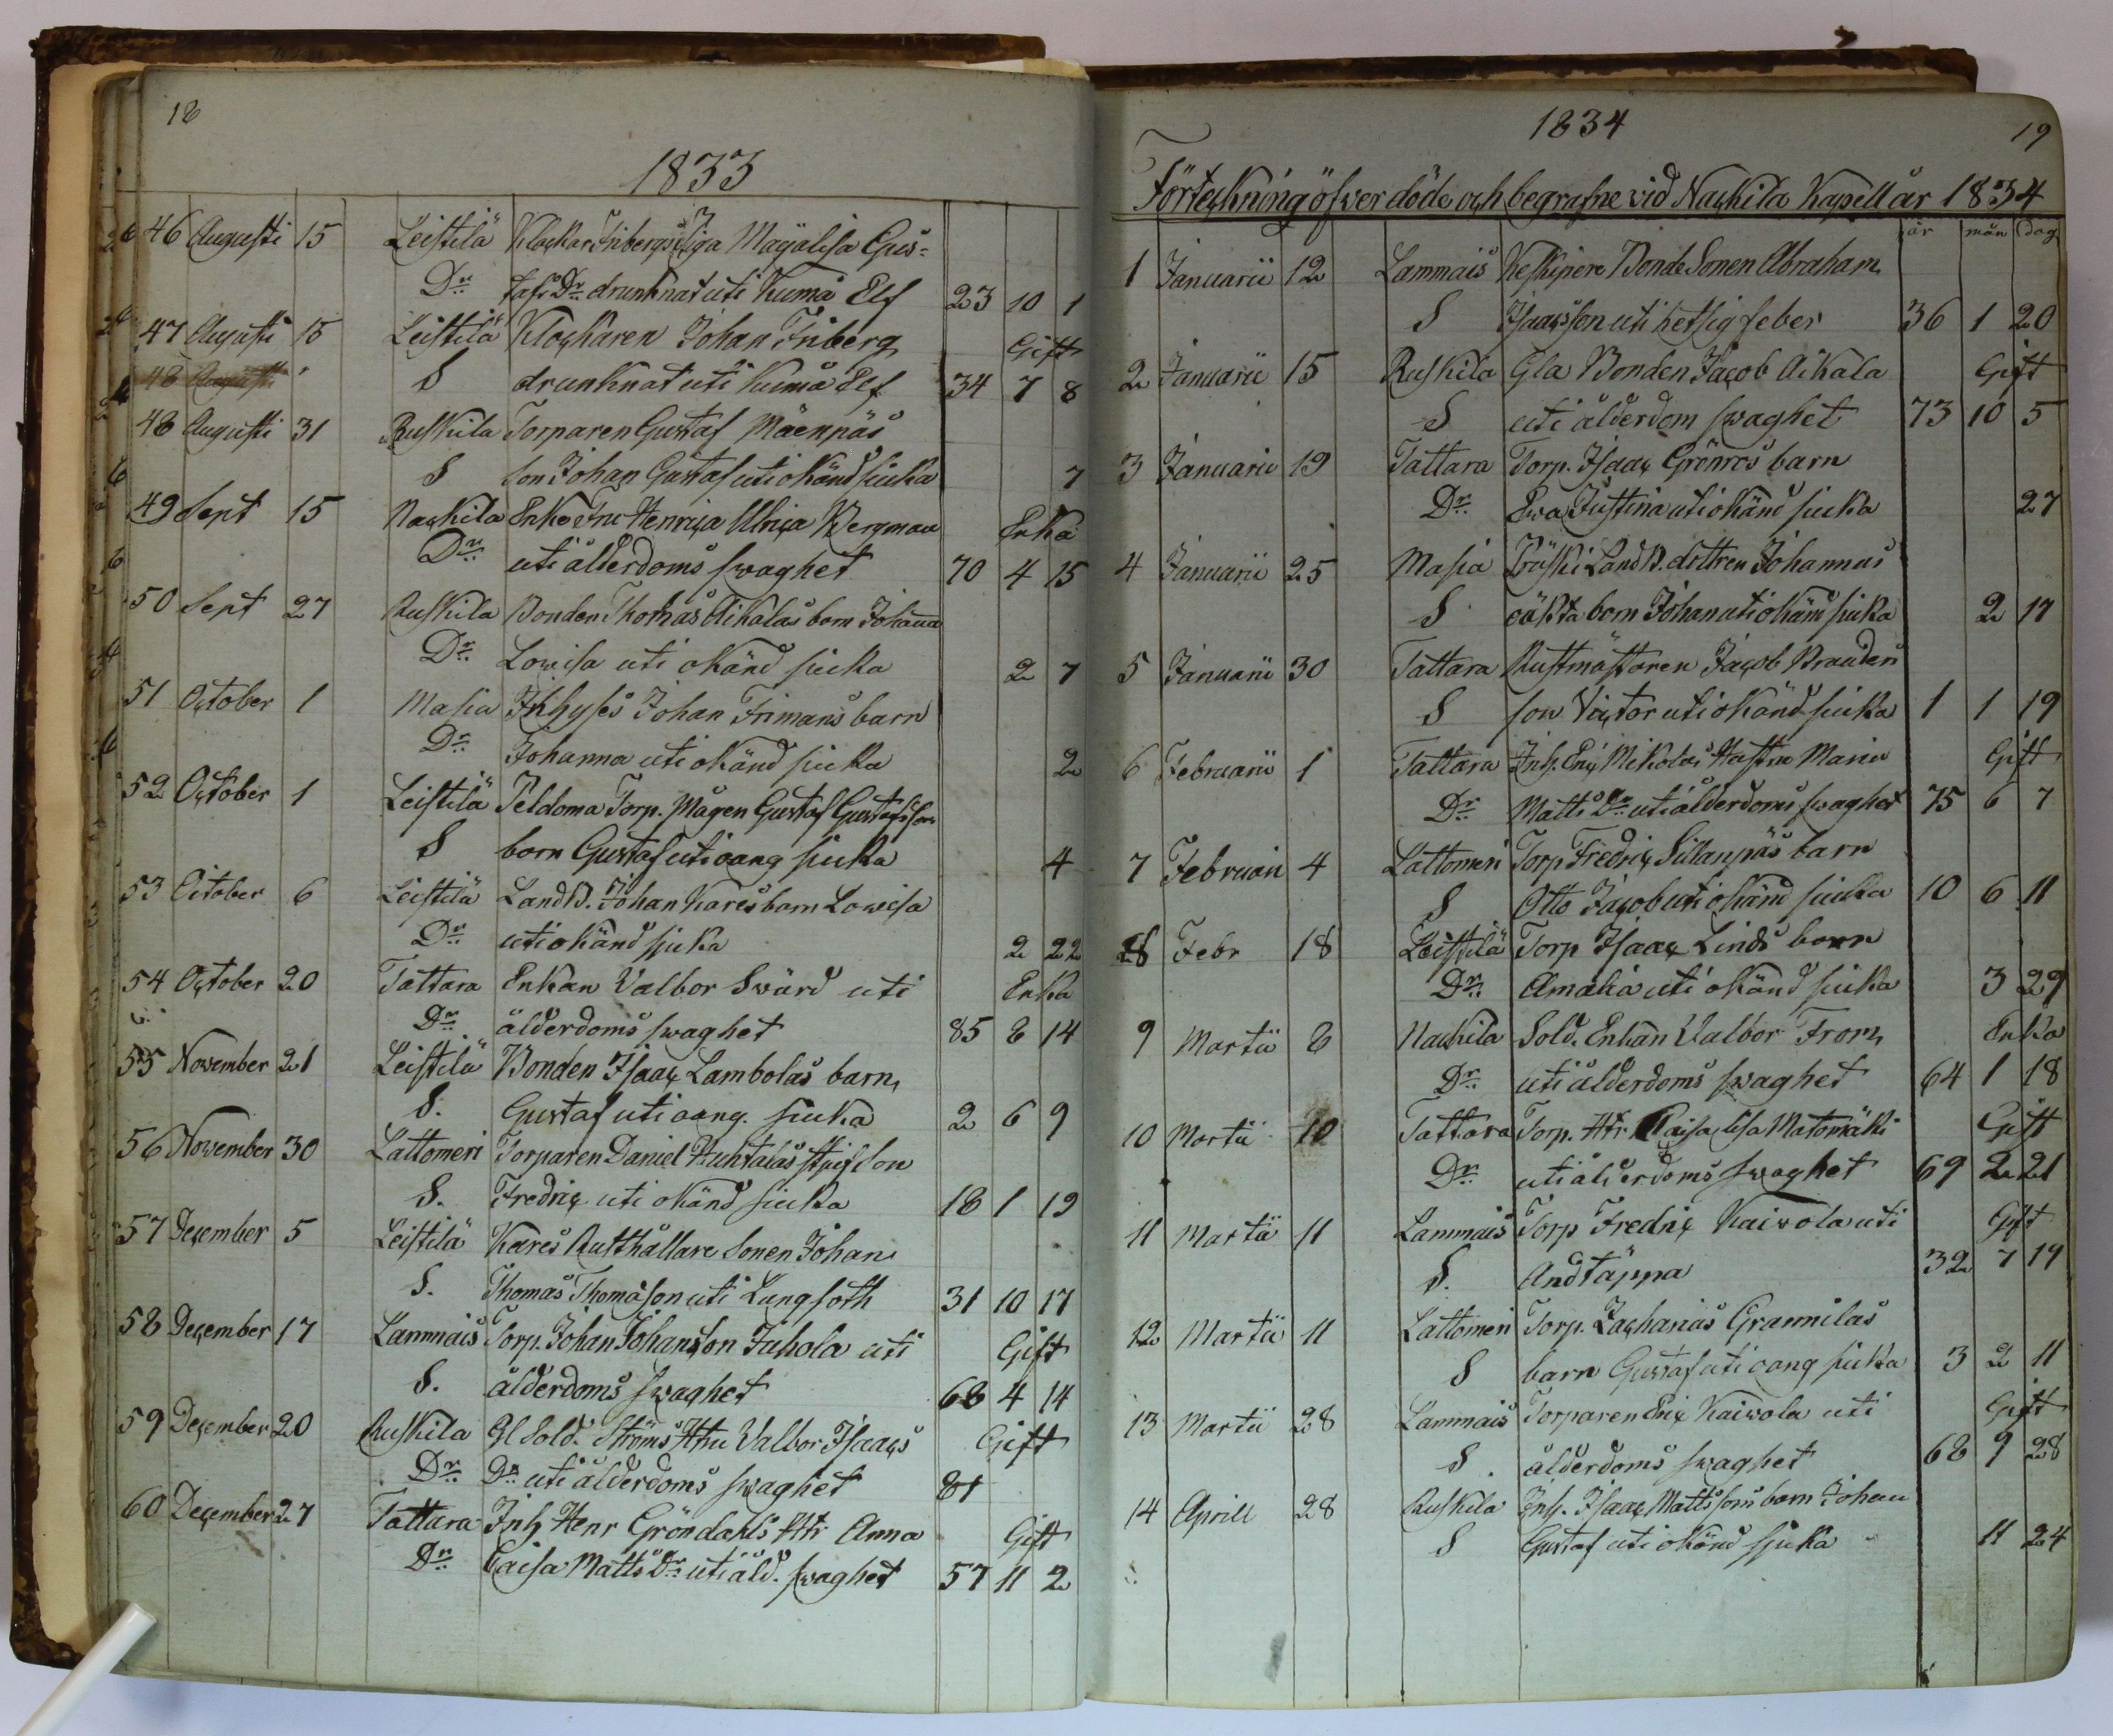 18
1833
46 Augusti 15 Leistilä Klockar Fribergs Piga Majalisa Gus-
Dr. tafs Dr. drunknat uti Kumå Elf 23 10 1
47 Augusti 15 Leistilä Klockaren Johan Friberg Gift
48 Augusti S drunknat uti Kumå Elf 34 7 8
48 Augusti 31 Ruskila Torparen Gustaf Mäenpäs
S son Johan Gustaf uti okänd siuka 7
49 Sept 15 Nackila Enke Fru Henrica Ulrica Bergman Enka
Dr. uti ålderdoms swaghet 70 4 15
50 Sept 27 Ruskila Bonden Thomas Aikalas barn Johanna
Dr. Lowisa uti okänd siuka 2 7
51 October 1 Masia Inhyses Johan Frimans barn
Dr. Johanna uti okänd siuka 2
52 October 1 Leistilä Peldoma Torp. Mågen Gustaf Gustafsson
S barn Gustaf uti oang siuka 4
53 October 6 Leistilä LandB. Johan Kares barn Lowisa
Dr. uti okänd siuka 2 22
54 October 20 Tattara Enkan Valbor Swärd uti Enka
Dr. ålderdoms swaghet 85 8 14
55 November 21 Leistilä Bonden Isaac Lambolas barn
S. Gustaf uti oang. siuka 2 6 9
56 November 30 Lattomeri Torparen Daniel Juhtalas stjuf Son
S. Fredric uti okänd siuka 18 1 19
57 December 5 Leistilä Kares Rusthållare Sonen Johan
S. Thomas Thomason uti Lungsoth 31 10 17
58 December 17 Lammais Torp. Johan Johansson Juhola uti Gift
S. ålderdoms swaghet 68 4 14
59 December 20 Ruskila Gl Sold. Ströms Htru Valbor Isaacs Gift
Dr. Dr. uti ålderdoms swaghet 81
60 December 27 Tattara Inh Henr Gröndahls Htr Anna Gift
Dr. Caisa Matts Dr. uti åld. swaghet 57 11 2
1834
19
Förteckning öfwer döde och begrafne vid Nackila Kapell år 1834
år mån dag
1 Januarii 12 Lammais Keskipere Bonde Sonen Abraham
S Isaacsson uti hetsig feber 36 1 20
2 Januarii 15 Ruskila Gla Bonden Jacob Aikala Gift
S uti ålderdom swaghet 73 10 5
3 Januarii 19 Tattara Torp. Isaac Grönros barn
Dr. Ewa Justina uti okänd siuka 27
4 Januarii 25 Masia LandB. dottren Johannas
S oäkta barn Johan uti okänd siuka 2 17
5 Januarii 30 Tattara Rustmästaren Jacob Branders
S son Victor uti okänd siuka 1 1 19
6 Februarii 1 Tattara Inh. Eric Mikolas Hustru Maria Gift
Dr. Matts Dr. uti ålderdoms swaghet 75 6 7
7 Februarii 4 Lattomeri Torp Fredric Sillanpäs barn
S Otto Jacob uti okänd siuka 10 6 11
8 Febr 18 Leistilä Torp Isaac Linds barn
Dr. Amalia uti okänd siuka 3 29
9 Martii 8 Nackila Sold. Enkan Valbor From Enka
Dr. uti ålderdoms swaghet 64 1 18
10 Martii 10 Tattara Torp. Htr Caisa Lisa Matomäki Gift
Dr. uti ålderdoms swaghet 69 2 21
11 Martii 11 Lammais Torp Fredric Kaiwola uti Gift
S. Andtäppa 32 7 19
12 Martii 11 Lattomeri Torp. Zacharias Grannilas
S barn Gustaf uti oang siuka 3 2 11
13 Martii 28 Lammais Torparen Eric Kaiwola uti Gift
S. ålderdoms swaghet 68 9 28
14 Aprill 28 Ruskila Inh. Isaac Mattssons barn Johan
S Gustaf uti okänd siuka 11 24